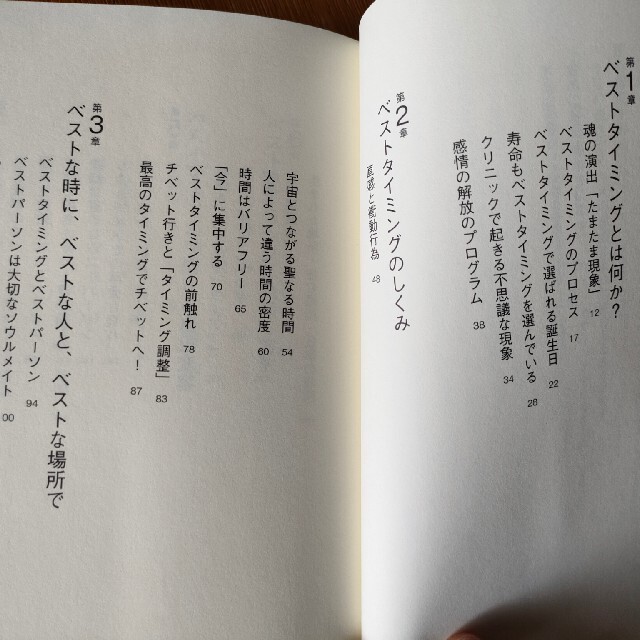 第1章
ベストタイミングとは何か？
魂の演出「たまたま現象」 12
ベストタイミングのプロセス 17
ベストタイミングで選ばれる誕生日 22
寿命もベストタイミングを選んでいる 28
クリニックで起きる不思議な現象 34
感情の解放のプログラム 38
第2章
ベストタイミングのしくみ
直感と衝動行為 48
宇宙とつながる聖なる時間 54
人によって違う時間の密度 60
時間はバリアフリー 65
「今」に集中する 70
ベストタイミングの前触れ 78
チベット行きと「タイミング調整」 83
最高のタイミングでチベットへ！ 87
第3章
ベストな時に、ベストな人と、ベストな場所で
ベストタイミングとベストパーソン 94
ベストパーソンは大切なソウルメイト